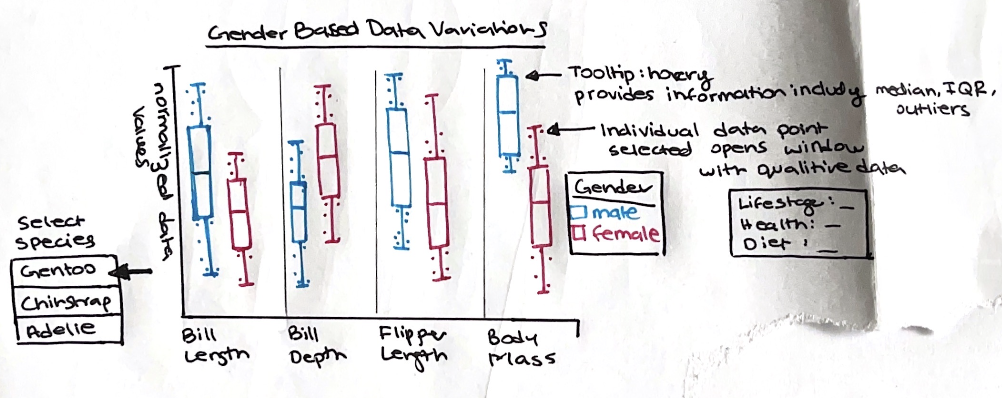 Gender Based Data Variations
Tooltip: hovery
provides information includy median, IQR,
outliers
Individual data point
selected opens window
with qualitive data
normalized data
values
Gender
male
female
Lifestage: _
Health: _
Diet : _
Select
species
Gentoo
Chinstrap
Adelie
Bill
Length
Bill
Depth
Flipper
Length
Body
Mass